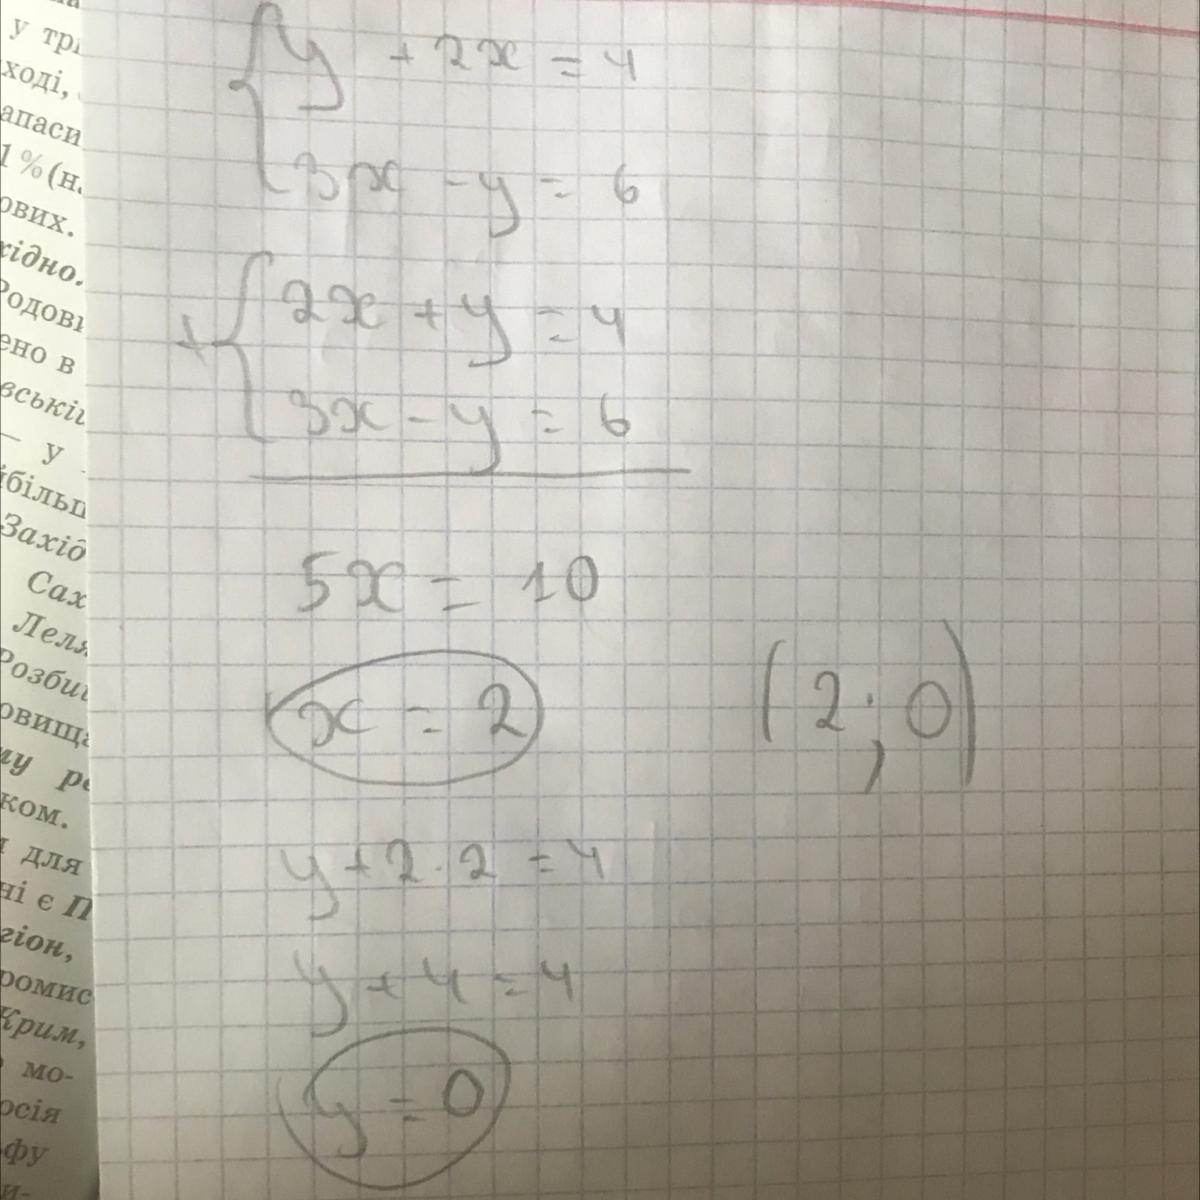 у трі
ході,
апаси
1 % (н
ових.
хідно.
Родові
ено в
вській
– у
йбільш
Захід
Сах
Леля
Розби
овища
му ре
ком.
для
ні є П
гіон,
ромис
Крим,
мо-
осія
фу
и-
y + 2x = 4
3x - y = 6
+ 2x + y = 4
3x - y = 6
5x = 10
x = 2
(2 ; 0)
y + 2 · 2 = 4
y + 4 = 4
y = 0